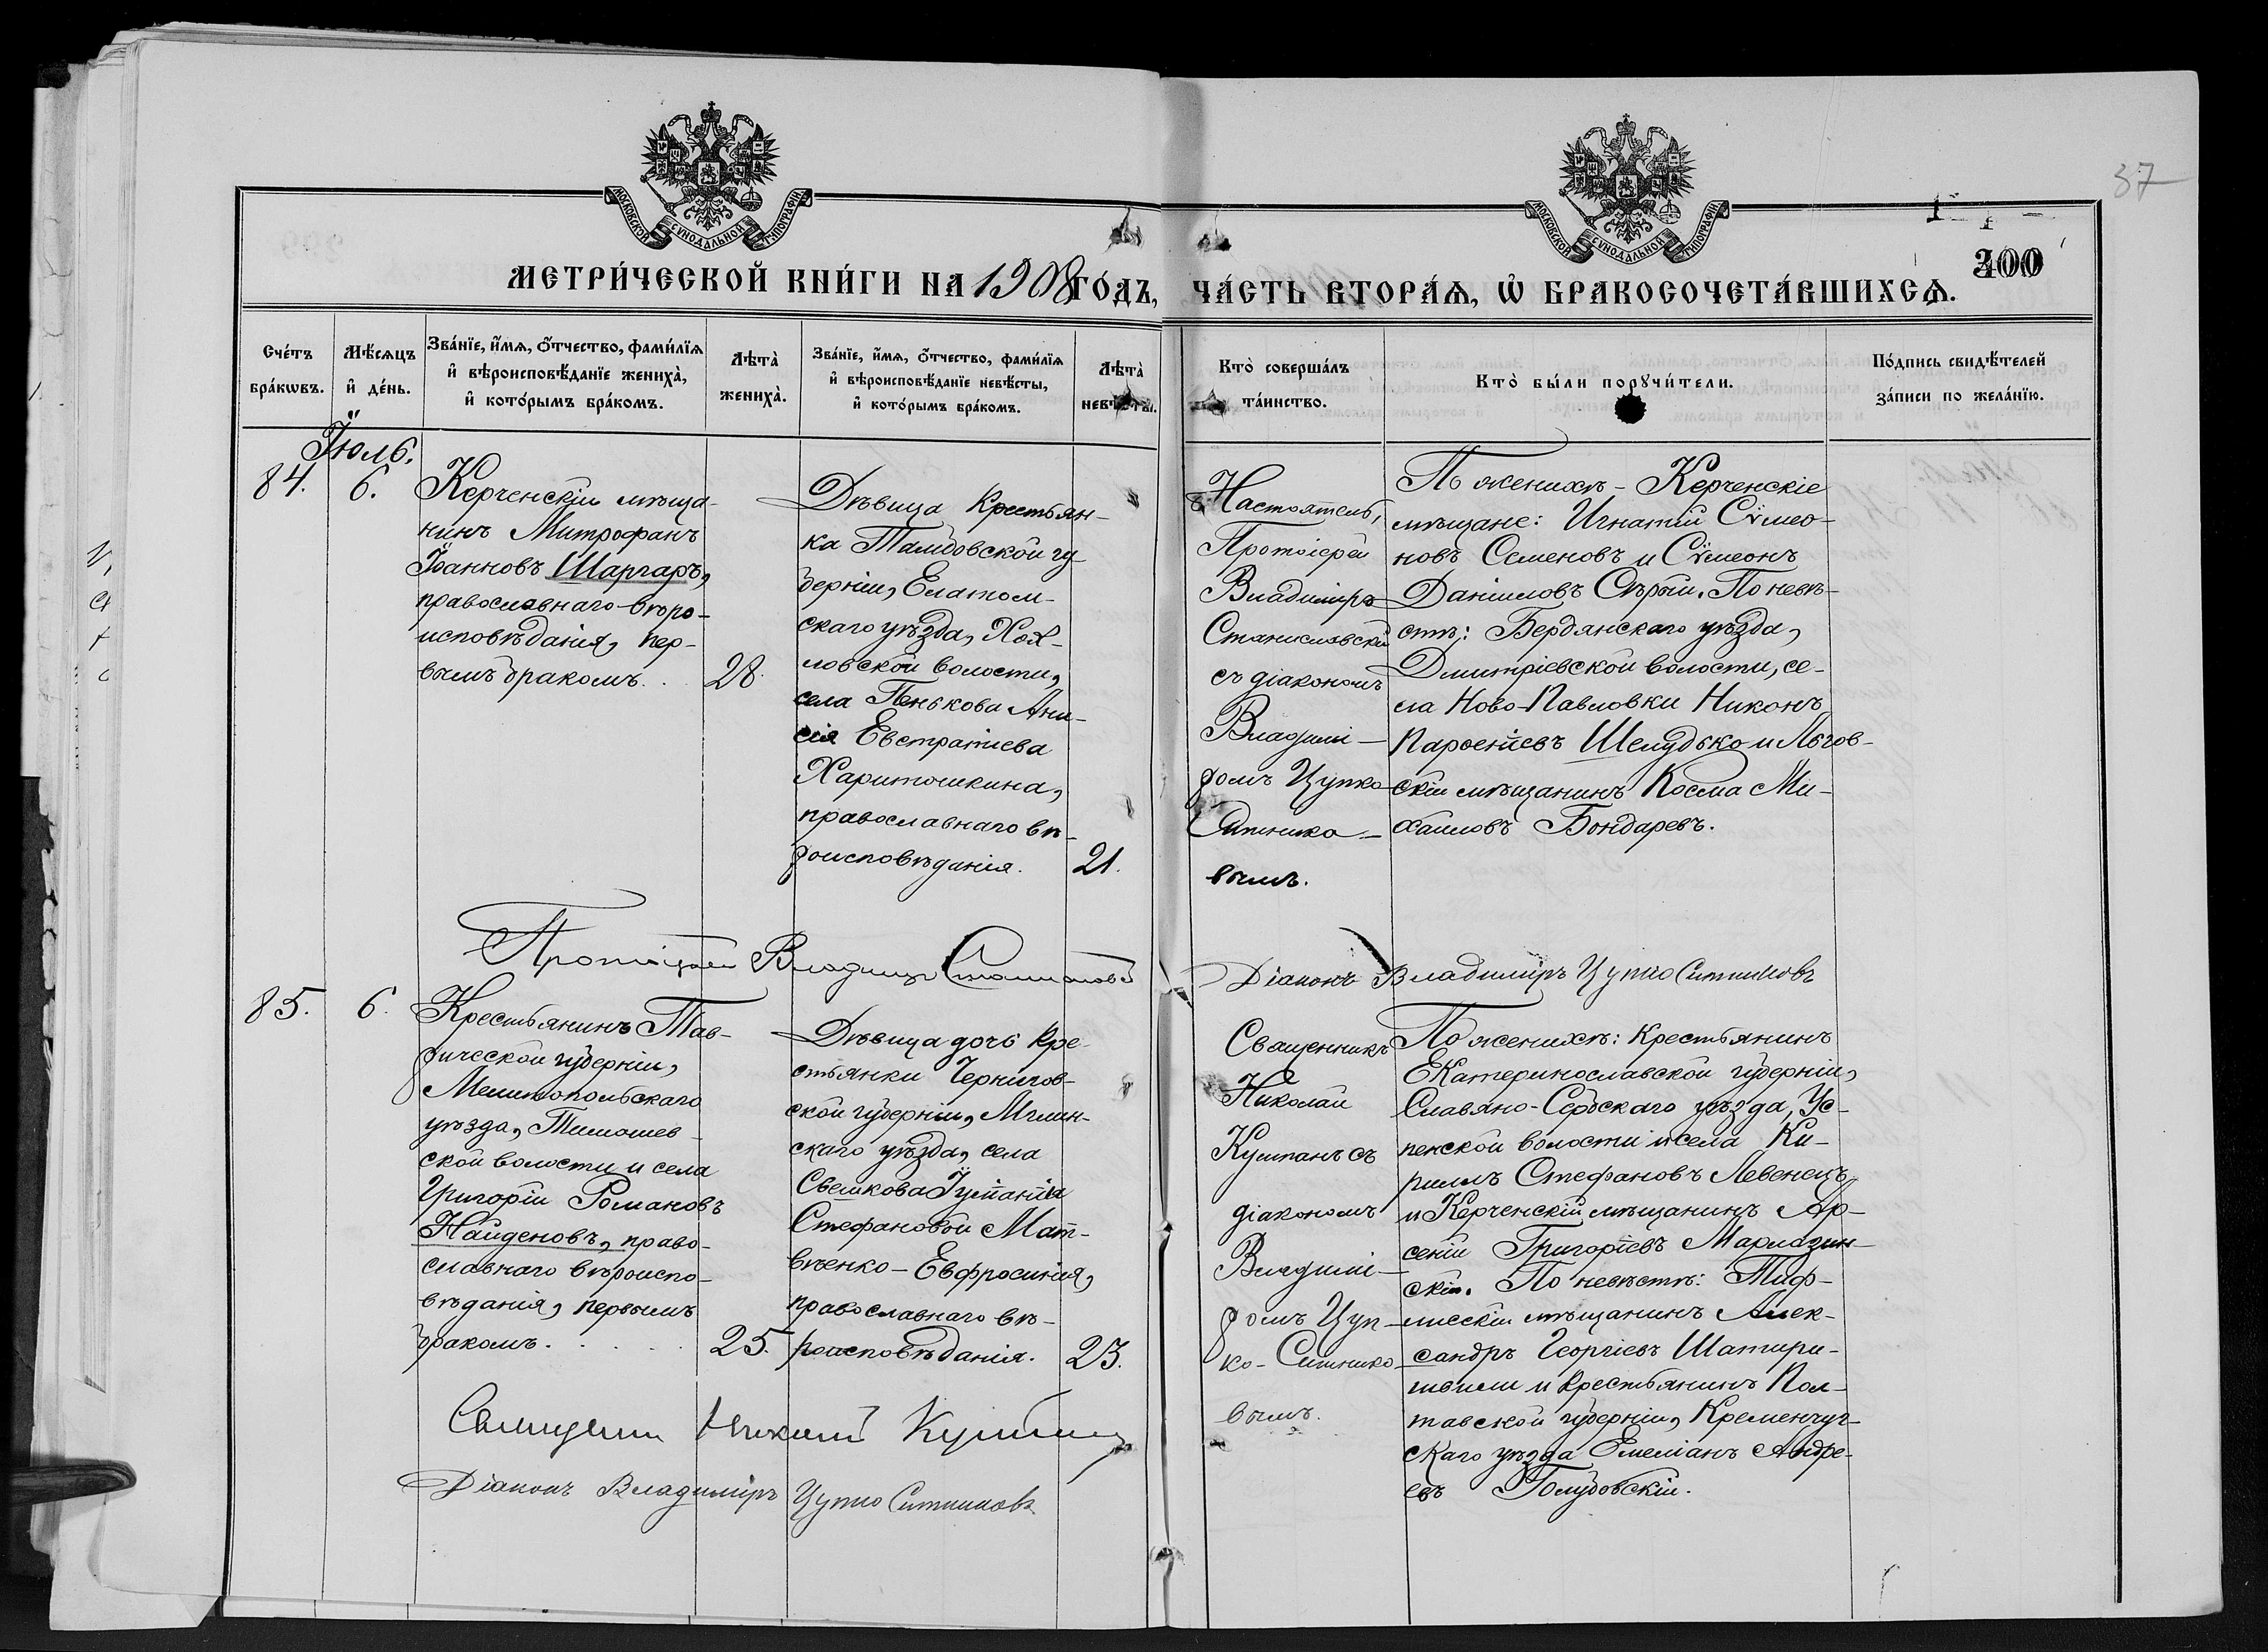 37
МОСКОВСКОЙ СѴНОДАЛЬНОЙ ТѴПОГРАФІИ
МОСКОВСКОЙ СѴНОДАЛЬНОЙ ТѴПОГРАФІИ
400
МЕТРИ́ЧЕСКОЙ КНИ́ГИ НА 1908 ГО́ДЪ,
ЧА́СТЬ ВТОРА́Ѧ, Ѡ҆ БРАКОСОЧЕТА́ВШИХСѦ.
Сче́тъ бра́кѡвъ.
Мѣ́сѧцъ и҆ де́нь.
Зва́нїе, и҆́мѧ, ѻ҆́тчество, фами́лїѧ
и҆ вѣроисповѣ́данїе жениха̀,
и҆ кото́рымъ бра́комъ.
Лѣта̀ жениха̀.
Зва́нїе, и҆́мѧ, ѻ҆́тчество, фами́лїѧ
и҆ вѣроисповѣ́данїе невѣ́сты,
и҆ кото́рымъ бра́комъ.
Лѣта̀ невѣ́сты.
Кто̀ соверша́лъ та́инство.
Кто̀ бы́ли порꙋчи́тели.
По́дпись свидѣ́телей за́писи по жела́нїю.
Іюль.
84.
6.
Керченскій мѣща-
нинъ Митрофанъ
Іоанновъ Шаргаръ,
православнаго вѣро-
исповѣданія, пер-
вымъ бракомъ.
28.
Дѣвица крестьян-
ка Тамбовской гу-
берніи, Елатом-
скаго уѣзда,
ловской волости,
села Пенькова Ани-
сія Евстратіева
Харитошкина,
православнаго вѣ-
роисповѣданія.
21.
Настоятель,
Протоіерей
Владиміръ
Станиславскій
съ діакономъ
Владимі-
ромъ Цупко-
Ситнико-
вымъ.
По женихѣ - Керченскіе
мѣщане: Игнатій Сѵмео-
новъ Семеновъ и Сѵмеонъ
Даніиловъ Сѣрый. По невѣ-
стѣ: Бердянскаго уѣзда,
Дмитріевской волости, се-
ла Ново-Павловки Никонъ
Парѳеніевъ Шелудько и Льгов-
скій мѣщанинъ Косма Ми-
хаиловъ Бондаревъ.
Протоіерей Владиміръ Станиславскій
Діаконъ Владиміръ Цупко Ситниковъ
85.
6.
Крестьянинъ Тав-
рической губерніи,
Мелитопольскаго
уѣзда, Тимошев-
ской волости и села
Григорій Романовъ
Найденовъ, право-
славнаго вѣроиспо-
вѣданія, первымъ
бракомъ.
25.
Дѣвица дочь кре-
стьянки Чернигов-
ской губерніи, Мглин-
скаго уѣзда, села
Іуліаніи
Стефановой Мат-
вѣенко - Евфросинія,
православнаго вѣ-
роисповѣданія.
23.
Священникъ
Николай
Куштанъ съ
діакономъ
Владимі-
ромъ Цуп-
ко-Ситнико-
вымъ.
По женихѣ: крестьянинъ
Екатеринославской губерніи,
Славяно-Сербскаго уѣзда, Ус-
пенской волости и села Ки-
риллъ Стефановъ Левенецъ
и Керченскій мѣщанинъ Ар-
сеній Григоріевъ Мармазин-
скій. По невѣстѣ: Тиф-
лисскій мѣщанинъ Алек-
сандръ Георгіевъ Шатири-
швили и крестьянинъ Пол-
тавской губерніи, Кременчуг-
скаго уѣзда Емеліанъ Андре-
евъ Голубовскій.
Священникъ Николай Куштанъ
Діаконъ Владиміръ Цупко Ситниковъ